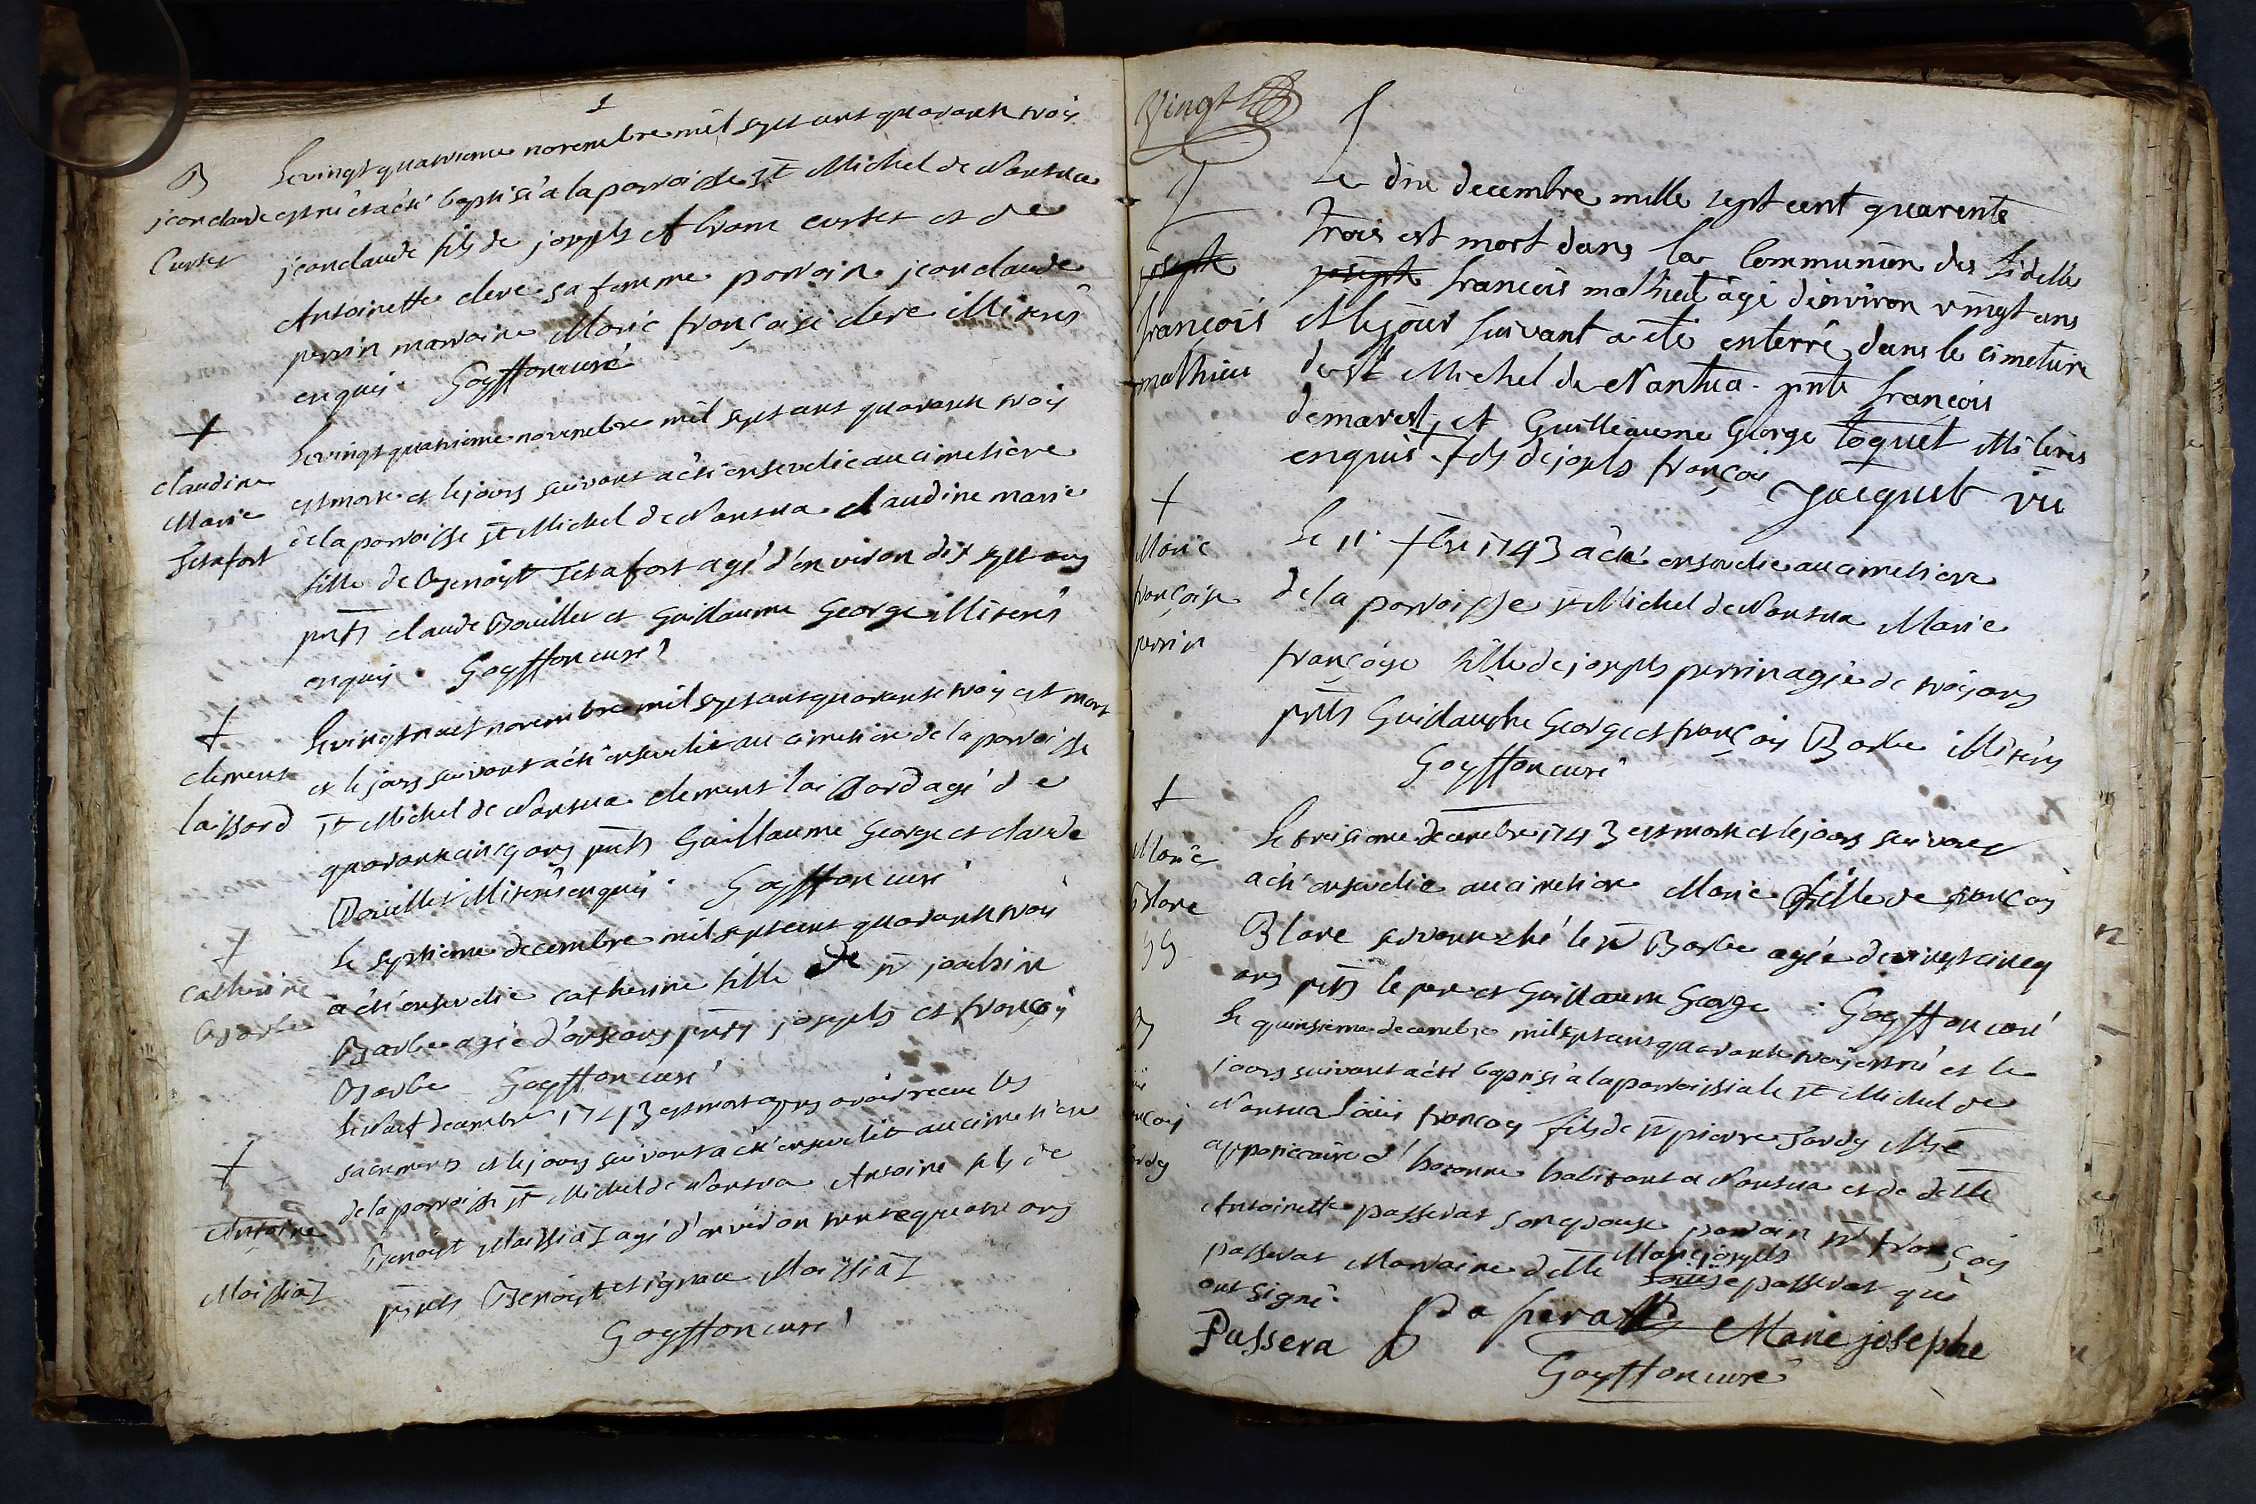 1
B
jean claude
Curtet
Le vingt quatrieme novembre mil sept cent quarante trois
est né et a eté baptisé a la parroisse St Michel de Nantua
jean claude fils de joseph Abram curtet et de
Antoinette clere sa femme parrain jean claude
perrin marraine Marie françoise clere illiterés
enquis. Goyffon curé
+
claudine
Marie
Tetafort
Le vingt quatrieme novembre mil sept cent quarante trois
est morte et le jours suivant a eté ensevelie au cimetière
de la parroisse St Michel de Nantua claudine marie
fille de Benoyt Tetafort agé d'environ dix sept ans
pnts claude Bouillet et Guillaume George illiterés
enquis. Goyffon curé
+
clement
laissard
Le vingt neuf novembre mil sept cent quarante trois est mort
et le jours suivant a eté ensevelit au cimetiere de la parroisse
St Michel de Nantua clement laissard agé de
quarante cinq ans pnts Guillaume George et claude
Bouillet illiterés enquis. Goyffon curé
+
catherine
Barbe
Le septieme decembre mil sept cent quarante trois
a eté ensevelie catherine fille de Sr joachim
Barbe agée d'onze ans pnts joseph et françois
Barbe Goyffon curé
+
Antoine
Maissiat
Le neuf decembre 1743 est mort apres avoir receu les
sacrements et le jours suivant a eté ensevelit au cimetiere
de la parroisse St Michel de Nantua Antoine fils de
Benoyt Maissiat agé d'environ trente quatre ans
pnts Benoyt et ignace Maissiat
Goyffon curé
Vingt
+
joseph
françois
mathieu
Le dix decembre mille sept cent quarente
trois est mort dans la Communion des fidelle
joseph françois mathieu âgé d'environ vingt ans
et le jour suivant a eté enterré dans le cimetiere
de St Michel de Nantua. pnts françois
demarest, et Guilleaume George toquet illiterés
enquis. + fils de joseph françois
Jacquet vic
+
Marie
françoise
perrin
Le 11e Xbre 1743 a eté ensevelie au cimetiere
de la parroisse St Michel de Nantua Marie
françoise fille de joseph perrin agée de trois ans
pnts Guillaume George et françois Barbe illiterés
Goyffon curé
+
Marie
Blanc
gg
Le treisieme decembre 1743 est morte et le jours suivant
a eté ensevelie au cimetiere Marie fille de françois
Blanc le Sr Barbe agée de vingt cinq
ans pnts le pere et Guillaume George. Goyffon curé
B
Le quinsieme decembre mil sept cent quarante trois est né et le
jours suivant a eté baptisé a la parroissiale St Michel de
Nantua loüis françois fils de Sr pierre Tardy Mre
appoticaire d'hotonne habitant a Nantua et de dlle
Antoinette passerat son epouse parrain Sr françois
passerat Marraine dlle Marie joseph
Louise passerat qui
ont signé.
Passera Passerat Marie josephe
Goyffon curé